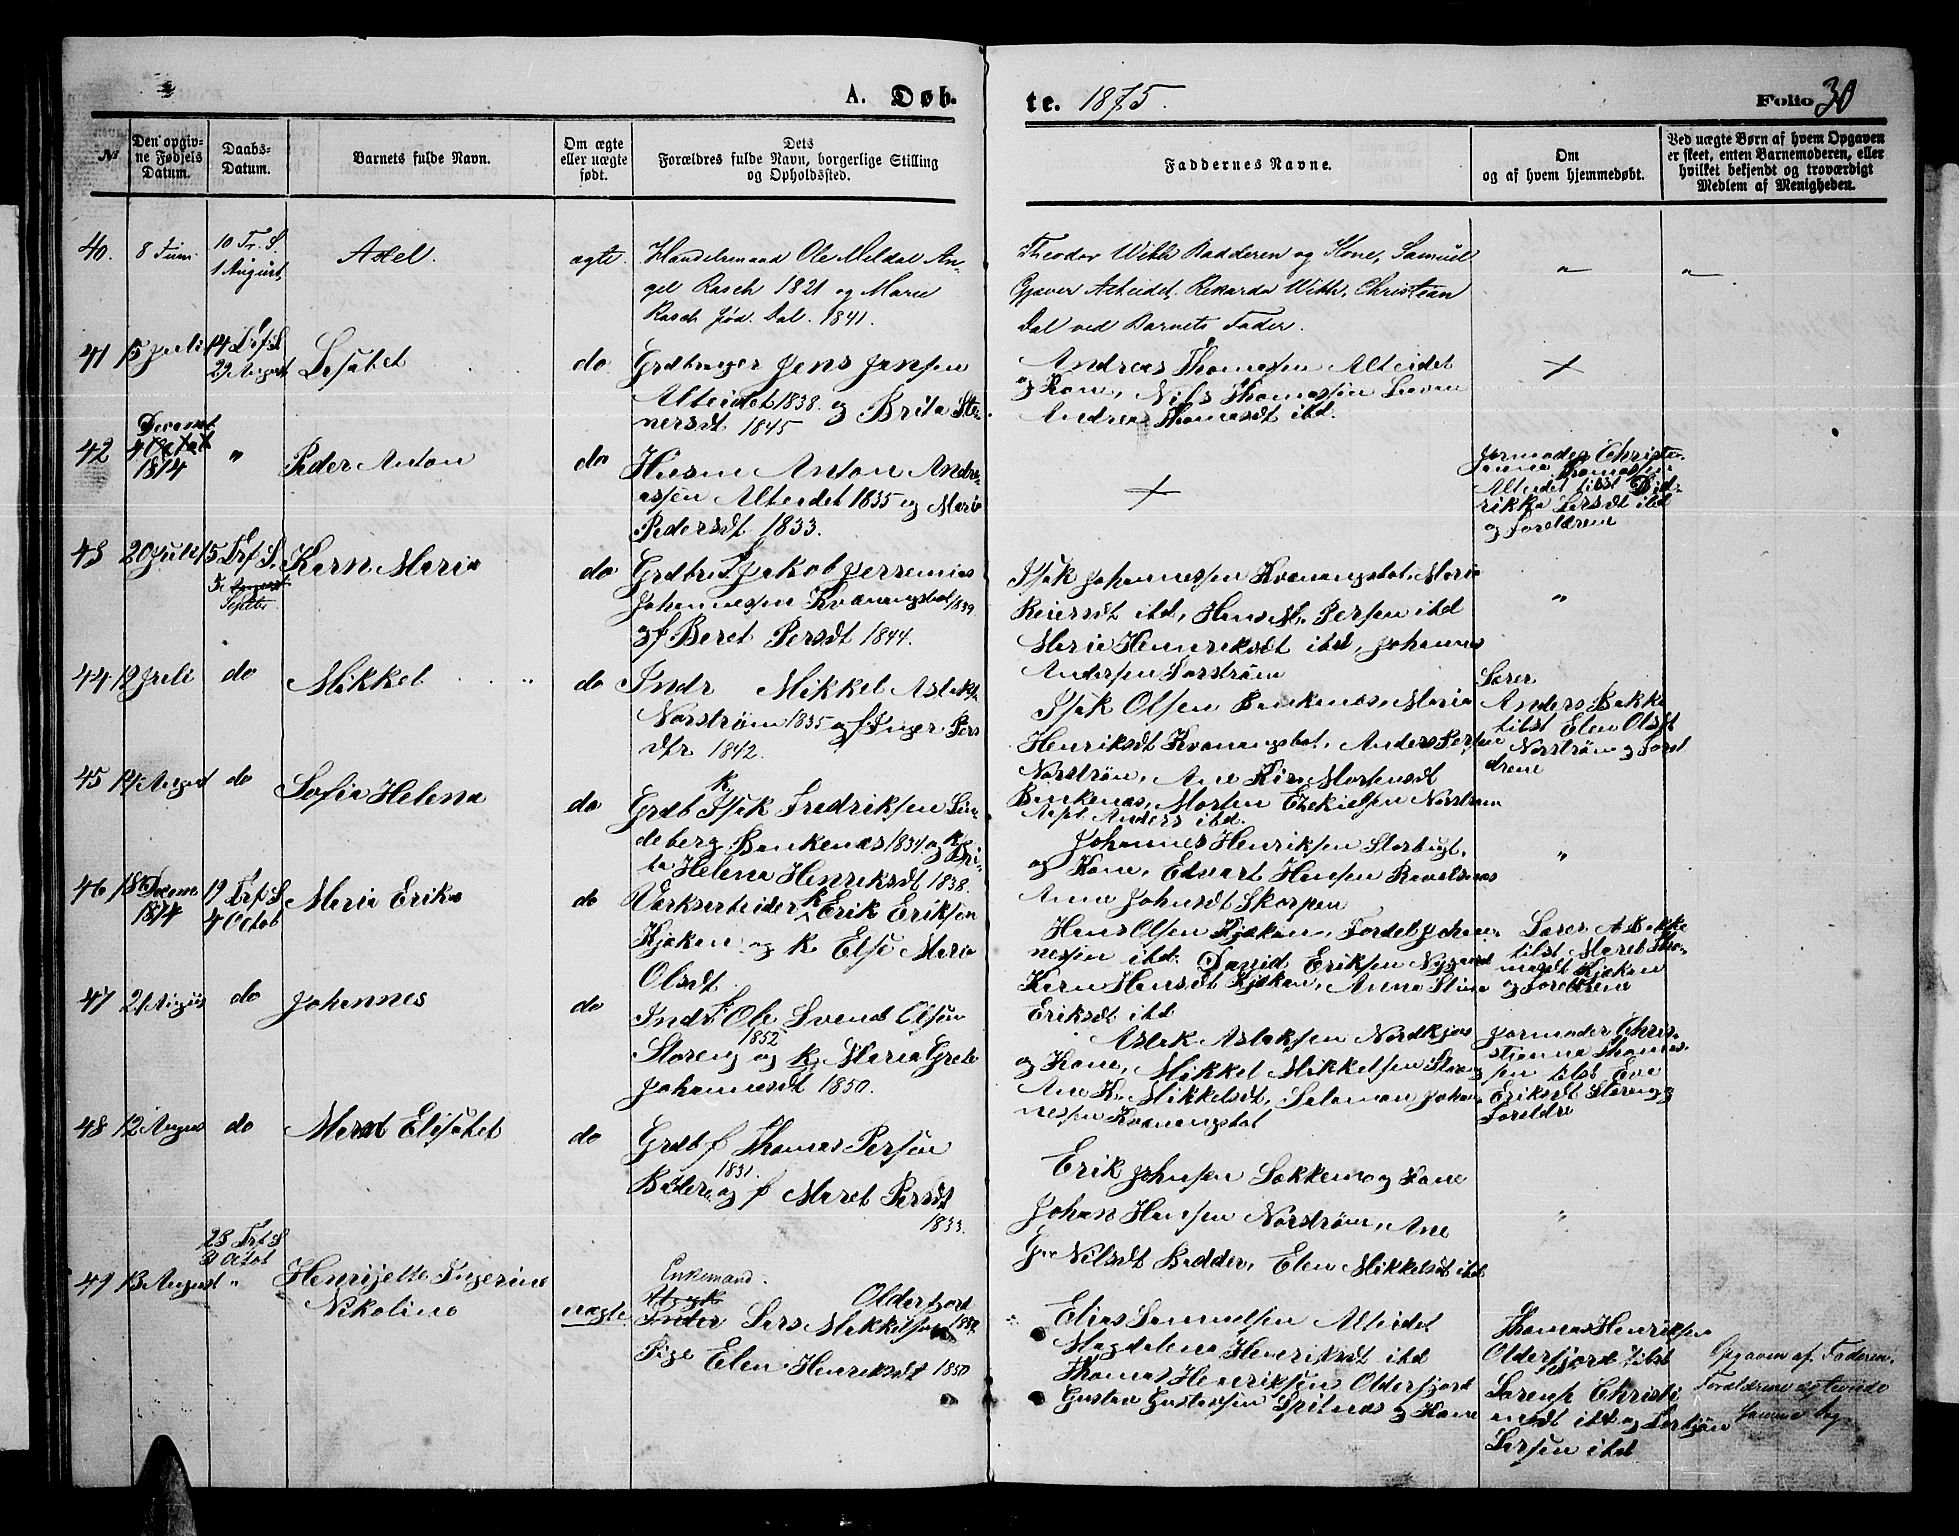 A. Døb-
te. 1875.
Folio 30
№
Den opgiv-
ne Fødsels
Datum.
Daabs-
Datum.
Barnets fulde Navn.
Om ægte
eller uægte
født.
Dets
Forældres fulde Navn, borgerlige Stilling
og Opholdssted.
Faddernes Navne.
Om
og af hvem hjemmedøbt.
Ved uægte Børn af hvem Opgaven
er skeet, enten Barnemoderen, eller
hvilket bekjendt og troværdigt
Medlem af Menigheden.
40. 8 Juni
10 Tr. S.
1 August
Axel.
ægte.
Handelsmand Ole Meldal An-
gel Rasch 1821 og Marie
Rasch fød. Dal. 1841.
Theodor With Badderen og Kone, Samuel
Gjæver Alteidet. Rikarda With, Christian
Dal ved Barnets Fader.
41 15 Juli
14 Trf. S.
29 August
Lisabet
do
Grdbruger Jens Jensen
Alteidet 1838. og Brita Ste-
nersdt 1845
Andreas Thomassen Alteidet
og Kone, Nils Thomassen
Andrea Thomasdt ibd.
42
1874
"
Peder Anton
do
Husm Anton Andre-
assen Alteidet 1835 og Marie
Pedersdt 1833.
Jormoder Christi-
anna Thomassen
Alteidet tilst Did-
rikka Larsdt ibd
og Foreldrene
43 20 Juli
15 Trf. S.
5
Septbr
Karn Maria
do
Grdbr Jakob Jerremias
Johannessen Kvænangsbot 1839
og f Beret Persdt 1844.
Isak Johannessen Kvænangsbot, Maria
Reiersdt ibd, Hans M. Persen ibd
Marie Henriksdt ibd, Johannes
Andersen Sørstrøm
"
44 12 Juli
do
Mikkel
do
Indr Mikkel Aslaks
Norstrøm 1835 og f Inger Pers
dtr 1842.
Isak Olsen Bankenæs, Maria
Henriksdt Kvænangsbot, Anders Persen
Norstrøm, Ane Kirs. Mortensdt
Bankenæs, Morten Ezekielsen Norstrøm
Anders ibd.
Lærer
Anders Bakke
tilst Elen Olsdt
Norstrøm og Forel
drene
45 14 August
do
Sofia Helena
do
Grdb k Isak Fredriksen Lin-
deberg Bankenæs 1834 og k Bri-
ta Helena Henriksdt 1838.
Johannes Henriksen Storbugt,
og Kone, Edvart Hansen Ravelsnæs
Anna Johnsdt Skorpen
"
46 18 Decem
1874
19 Trf S
4 Octob
Maria Erika
do
Værksarbeider k Erik Eriksen
Kjækan og k. Else Maria
Olsdt
Hans Olsen Kjækan, Fordel Johan-
nessen ibd. David Eriksen Nygaard
Karn Hansdt Kjækan, Anna Stina
Eriksdt ibd
Lærer A Bakke
tilst Maret Tho-
masdt Kjækan
og Foreldrene
47 21 August
do
Johannes
do
Indr f Ole Svend Olsen
1852
Storeng og k. Maria Grete
Johannesdt 1850.
Aslak Aslaksen Nordkjos
og Kone, Mikkel Mikkelsen Storeng
Ane K. Mikkelsdt, Salamon Johan-
nessen Kvænangsbot
Jormoder Chris-
tianna Thomas-
sen tilst Eva
Eriksdt Storeng og
Foreldre
48 12 August
do
Maret Elisabet
do
Grdb f Thomas Persen
1831.
og f Maret Persdt
1833.
Erik Johnsen Løkkem og Kone
Johan Hansen Norstrøm, Ane
Nilsdt Badder, Elen Mikkelsdt ibd
"
49 13 August
23 Trf S
31 Octob
"
Henrijette Ingerine
Nikoline
uægte.
Enkemand.
Olderfjord
Lars Mikkelsen
Pige Elen Henriksdt 1850
Elias Samuelsen Alteidet
Magdalena Henriksdt ibd
Thomas Henriksen Olderfjord
Gustav Gustavsen Spilnæs og Kone
Thomas Henriksen
Olderfjord tilst
Christi-
ansdt ibd og Torbjøn
Larsen ibd
Opgaven af Faderen.
Forældrene
samme